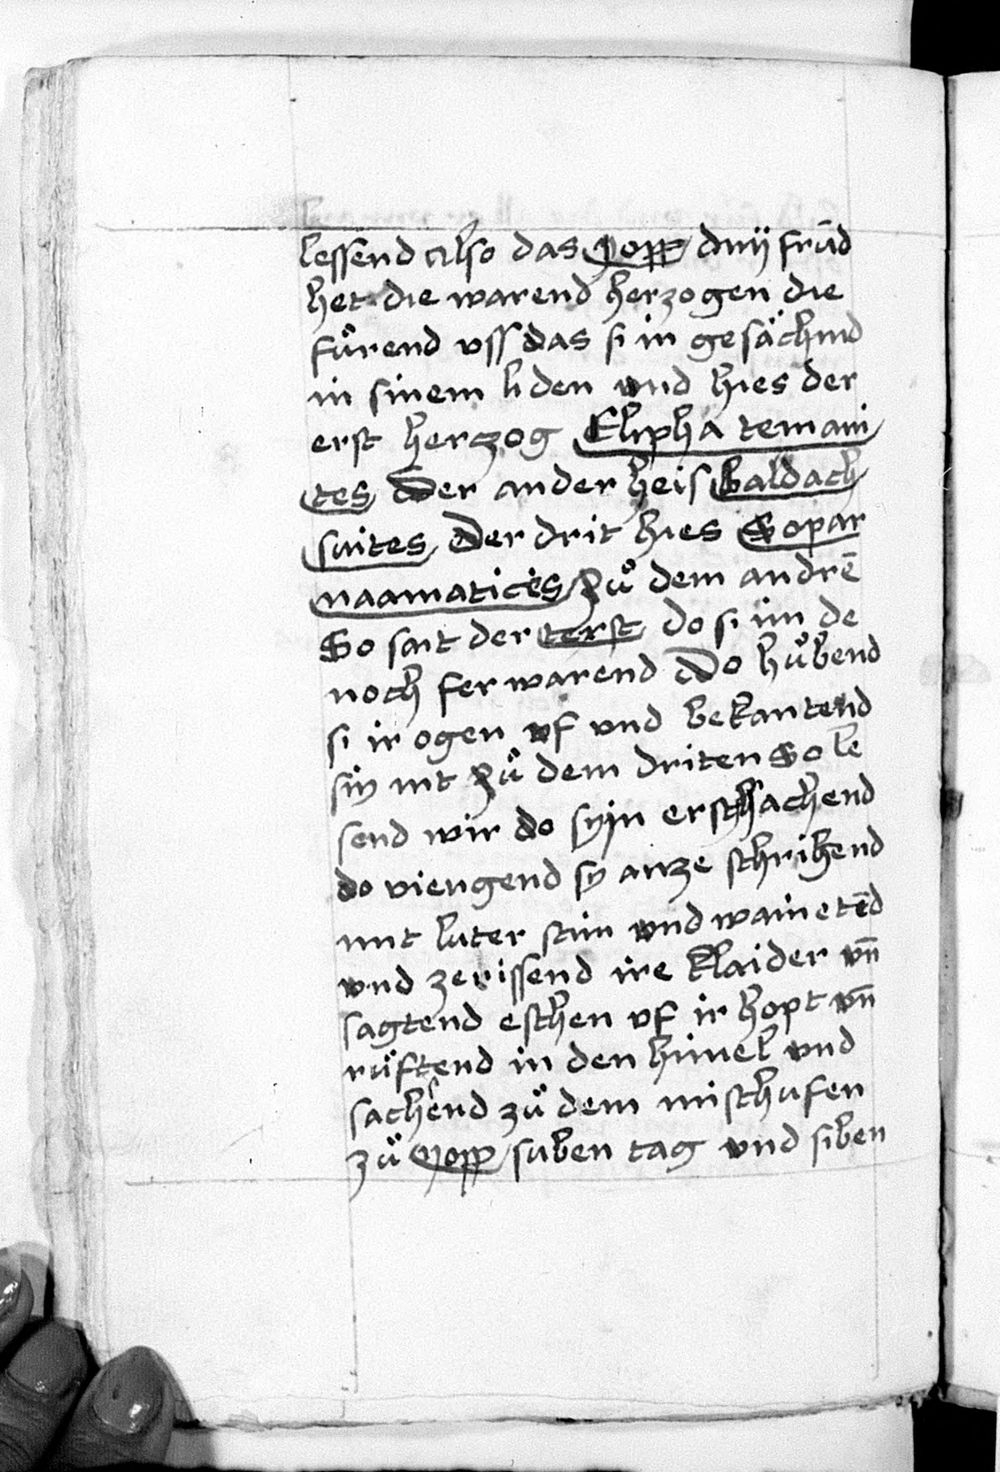 lessend also das Yopp dry frūd
het die warend herzogen die
fůrend vss das si in gesächind
in sinem liden vnd hies der
erst herczog Eliphä temani
tes Der ander heis Baldach
suites Der drit hies Sopar
naamatices Zů dem andrē
So sait der terst do si im de
noch fer warend Do hůbend
si ir ogen vf vnd bekantend
sin nit Zů dem driten So le
send wir do syin ersachend
do viengend sy an ze schrikend
mit luter stim vnd wainetēd
vnd zerissend ire klaider vn̄
sagtend eschen vf ir hopt vn̄
růftend in den himel vnd
sachend zů dem misthufen
zů Yopp suben tag vnd siben